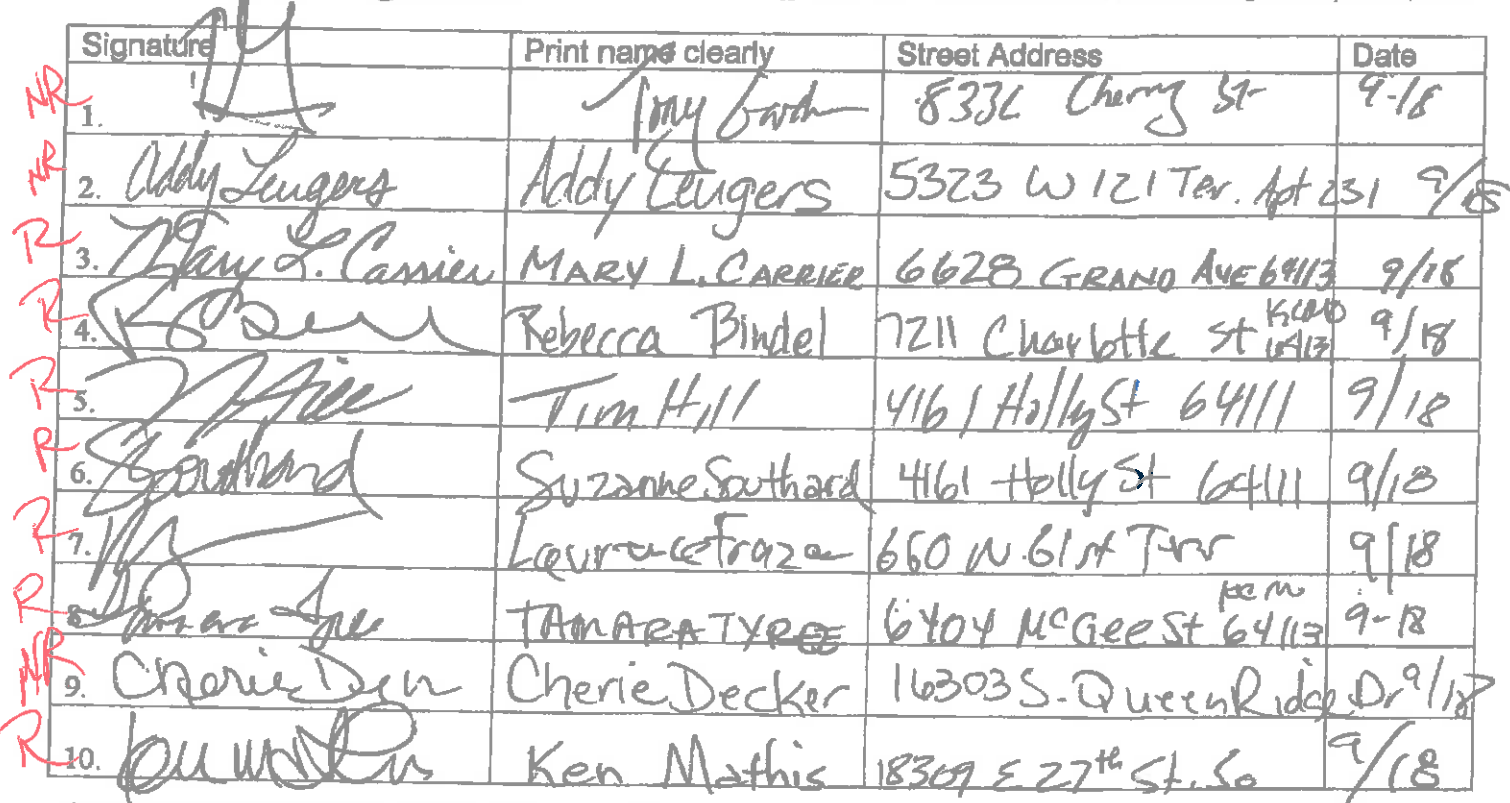 Signature Print name clearly Street Address Date
NR 1. Tony 8336 Cherry St 9-18
NR 2. Addy Leugers Addy Leugers 5323 W 121 Ter. Apt 231 9/18
R 3. Mary L. Carrier MARY L. CARRIER 6628 GRAND AVE 64113 9/18
R 4. Rebecca Bindel 7211 Charlotte St KCMO 64131 9/18
R 5. Tim Hill 4161 Holly St 64111 9/18
R 6. Southard Suzanne Southard 4161 Holly St 64111 9/18
R 7. Laurence Frazen 660 N. 61st Terr 9/18
R 8. TAMARA TYREE 6404 McGee St 64113 9-18
NR 9. Cherie Cherie Decker 16303 S. Queen Ridge Dr 9/18
R 10. Ken Mathis 18309 E 27th St. So 9/18